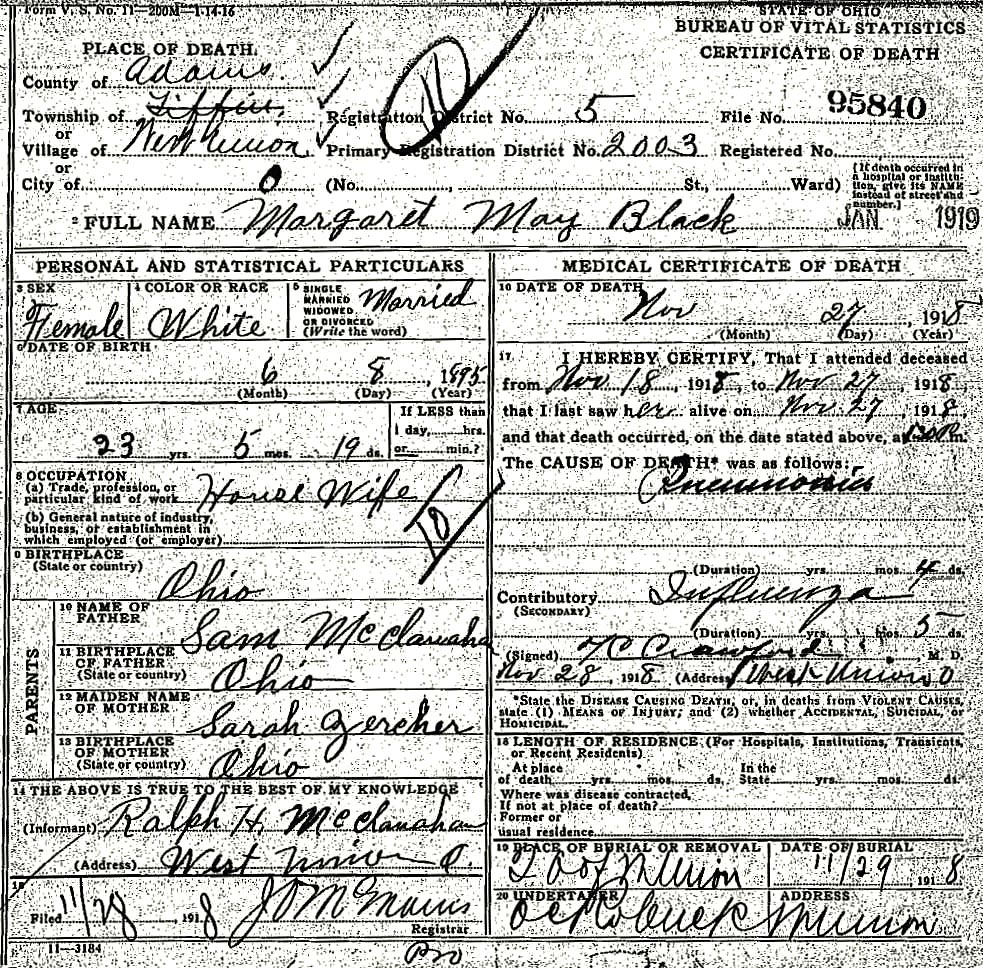 Form V. S. No. 11—200M—1-14-16
STATE OF OHIO
BUREAU OF VITAL STATISTICS
CERTIFICATE OF DEATH
PLACE OF DEATH.
County of Adams.
Township of Tiffin Registration District No. 5 File No. 95840
or
Village of West Union Primary Registration District No. 2003 Registered No.
or
City of 0 (No. , St., Ward)
[If death occurred in
a hospital or institu-
tion, give its NAME
instead of street and
number.]
11
JAN 1919
2 FULL NAME Margaret May Black
PERSONAL AND STATISTICAL PARTICULARS
3 SEX
Female
4 COLOR OR RACE
White
5 SINGLE
MARRIED
WIDOWED
OR DIVORCED
(Write the word)
Married
6 DATE OF BIRTH
6 8, 1895
(Month) (Day) (Year)
7 AGE
23 yrs. 5 mos. 19 ds.
If LESS than
1 day, hrs.
or min.?
8 OCCUPATION
(a) Trade, profession, or
particular kind of work House Wife
(b) General nature of industry,
business, or establishment in
which employed (or employer)
10
9 BIRTHPLACE
(State or country)
Ohio
PARENTS
10 NAME OF
FATHER
Sam McClanahan
11 BIRTHPLACE
OF FATHER
(State or country)
Ohio
12 MAIDEN NAME
OF MOTHER
Sarah Zercher
13 BIRTHPLACE
OF MOTHER
(State or country)
Ohio
14 THE ABOVE IS TRUE TO THE BEST OF MY KNOWLEDGE
(Informant) Ralph H. McClanahan
(Address) West Union O.
15
Filed 11/28, 1918 Registrar
11—3184
MEDICAL CERTIFICATE OF DEATH
16 DATE OF DEATH
Nov 27, 1918
(Month) (Day) (Year)
17 I HEREBY CERTIFY, That I attended deceased
from Nov 18, 1918, to Nov 27, 1918,
that I last saw her alive on Nov 27, 1918,
and that death occurred, on the date stated above, at m.
The CAUSE OF DEATH* was as follows:
Pneumonia
(Duration) yrs. mos. 4 ds.
Contributory Influenza
(SECONDARY)
(Duration) yrs. mos. 5 ds.
(Signed) Crawford, M. D.
Nov 28, 1918 (Address) West Union O
*State the DISEASE CAUSING DEATH, or, in deaths from VIOLENT CAUSES,
state (1) MEANS OF INJURY; and (2) whether ACCIDENTAL, SUICIDAL, or
HOMICIDAL.
18 LENGTH OF RESIDENCE (For Hospitals, Institutions, Transients,
or Recent Residents)
At place In the
of death yrs. mos. ds. State yrs. mos. ds.
Where was disease contracted,
If not at place of death?
Former or
usual residence
19 PLACE OF BURIAL OR REMOVAL
DATE OF BURIAL
11/29 1918
20 UNDERTAKER
ADDRESS